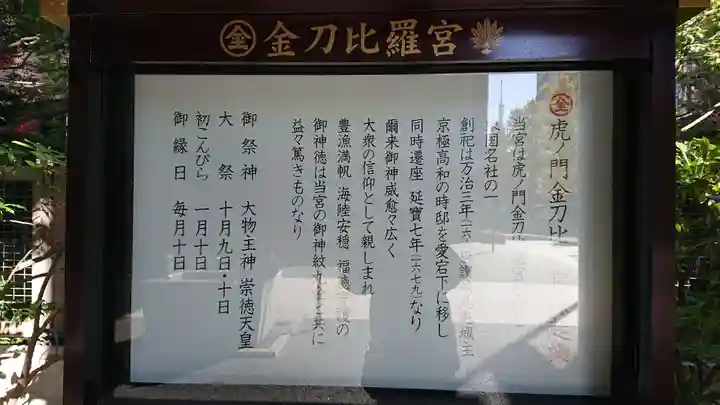 金 金刀比羅宮
金 虎ノ門金刀比
当宮は虎ノ門金刀
国名社の一
創祀は万治三年(一六
城主
京極高和の時邸を愛宕下に移し
同時遷座 延寶七年(一六七九)なり
爾来御神威愈々広く
大衆の信仰として親しまれ
豊漁満帆 海陸安穏 福徳 の
御神徳は当宮の御神紋 共に
益々篤きものなり
御祭神 大物主神 崇徳天皇
大祭 十月九日・十日
初こんぴら 一月十日
御縁日 毎月十日